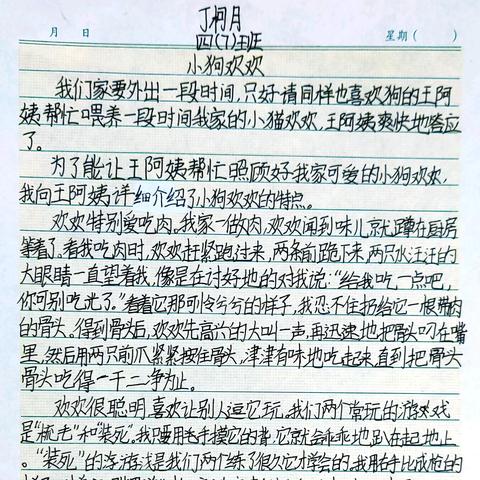 月 日 星期（ ）
丁柯月
四（7）班
小狗欢欢
我们家要外出一段时间，只好请同样也喜欢狗的王阿
姨帮忙喂养一段时间我家的小猫欢欢，王阿姨爽快地答应
了。
为了能让王阿姨帮忙照顾好我家可爱的小狗欢欢，
我向王阿姨详细介绍了小狗欢欢的特点。
欢欢特别爱吃肉。我家一做肉，欢欢闻到味儿就蹲在厨房
等着了。看我吃肉时，欢欢赶紧跑过来，两条前跪下来，两只水汪汪的
大眼睛一直望着我，像是在讨好地的对我说：“给我吃一点吧，
你可别吃光了。”看着它那可怜兮兮的样子，我忍不住扔给它一根带肉
的骨头。得到骨头后，欢欢先高兴的大叫一声，再迅速地把骨头叼在嘴
里，然后用两只前爪紧紧按住骨头，津津有味地吃起来，直到把骨头
骨头吃得一干二净为止。
欢欢很聪明，喜欢让别人逗它玩。我们两个常玩的游戏
是“梳毛”和“装死”，我只要用手摸它的背，它就会乖乖地趴在地上
。“装死”的游戏是我们两个练了很久它才学会的，我用右手比成枪的